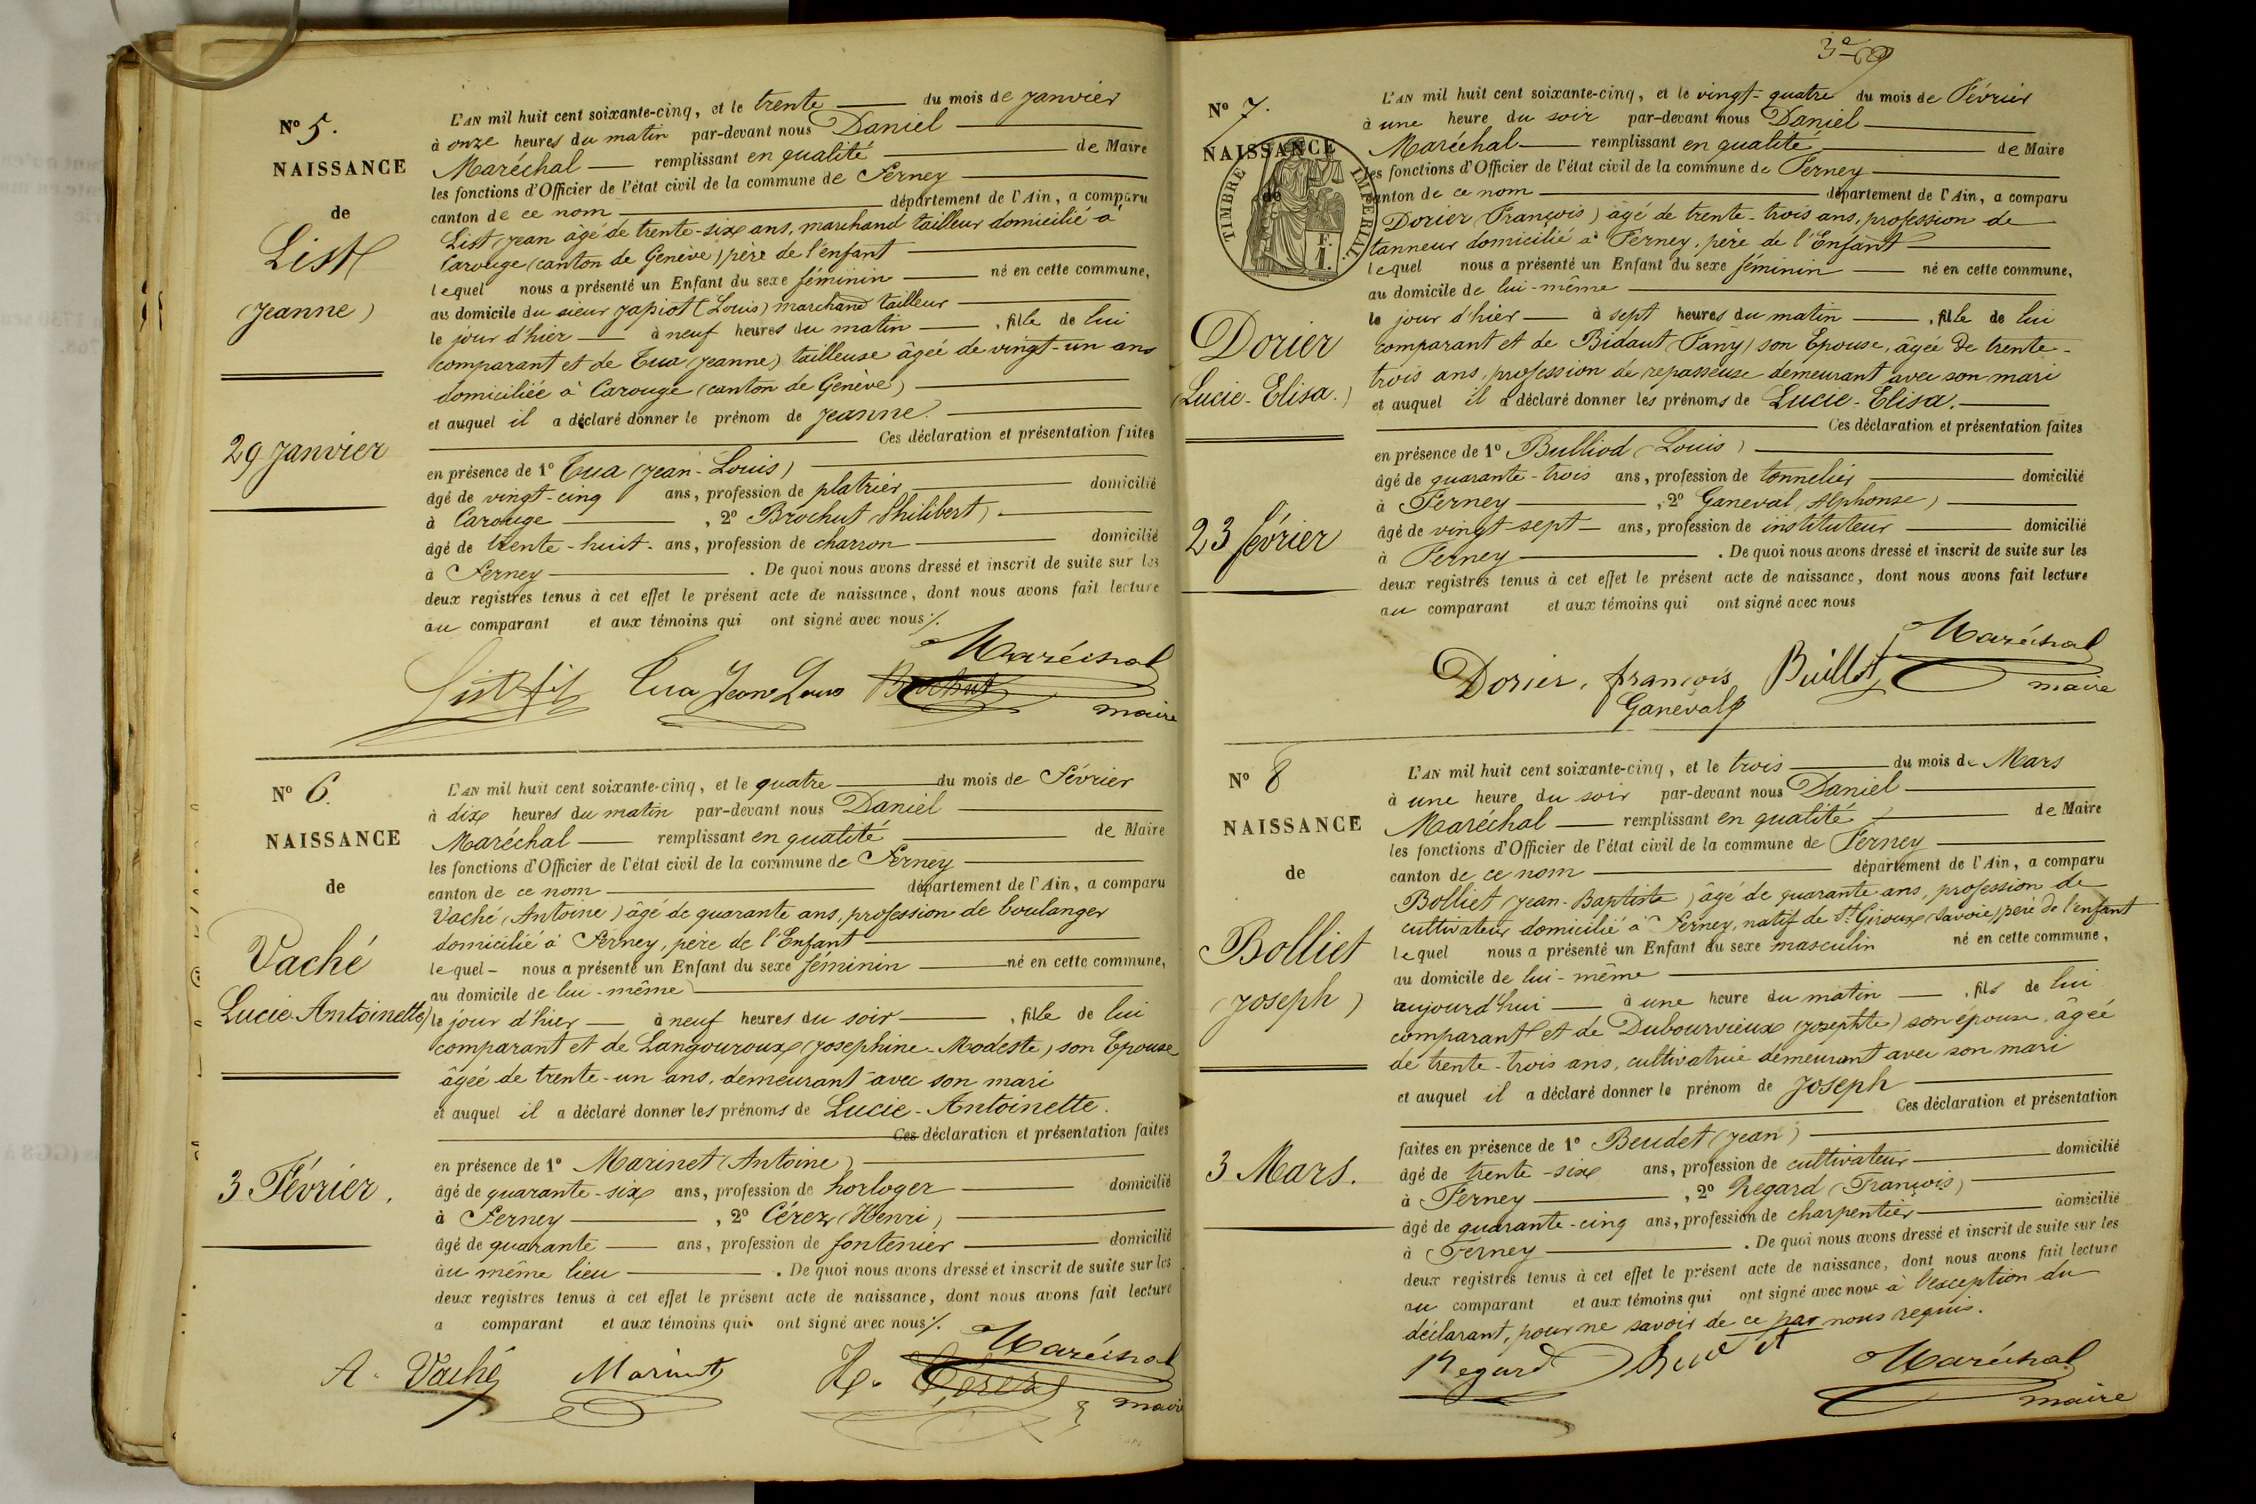 Nº 5.
NAISSANCE
de
List
(Jeanne)
29 Janvier
L'AN mil huit cent soixante-cinq, et le trente du mois de Janvier
à onze heures du matin par-devant nous Daniel
Maréchal remplissant en qualité de Maire
les fonctions d'Officier de l'état civil de la commune de Ferney
canton de ce nom département de l'Ain, a comparu
List Jean âgé de trente-six ans, marchand tailleur domicilié à
Carouge (canton de Genève) père de l'enfant
lequel nous a présenté un Enfant du sexe féminin né en cette commune,
au domicile du sieur Japiot (Louis) marchand tailleur
le jour d'hier à neuf heures du matin, fille de lui
comparant et de Tua (Jeanne) tailleuse âgée de vingt-un ans
domiciliée à Carouge (canton de Genève)
et auquel il a déclaré donner le prénom de Jeanne.
Ces déclaration et présentation faites
en présence de 1º Tua (Jean-Louis)
âgé de vingt-cinq ans, profession de platrier domicilié
à Carouge, 2º Brochut Philibert)
âgé de trente-huit ans, profession de charron domicilié
à Ferney. De quoi nous avons dressé et inscrit de suite sur les
deux registres tenus à cet effet le présent acte de naissance, dont nous avons fait lecture
au comparant et aux témoins qui ont signé avec nous ⁒
Maréchal
List fils Tua Jean Louis Brochut
maire
Nº 6.
NAISSANCE
de
Vaché
Lucie-Antoinette)
3 Février.
L'AN mil huit cent soixante-cinq, et le quatre du mois de Février
à dix heures du matin par-devant nous Daniel
Maréchal remplissant en qualité de Maire
les fonctions d'Officier de l'état civil de la commune de Ferney
canton de ce nom département de l'Ain, a comparu
Vaché (Antoine) âgé de quarante ans, profession de boulanger
domicilié à Ferney, père de l'Enfant
lequel - nous a présenté un Enfant du sexe féminin né en cette commune,
au domicile de lui-même
le jour d'hier à neuf heures du soir, fille de lui
comparant et de Langouroux (Josephine-Modeste) son Epouse
âgée de trente-un ans, demeurant avec son mari
et auquel il a déclaré donner les prénoms de Lucie-Antoinette.
Ces déclaration et présentation faites
en présence de 1º Marinet (Antoine)
âgé de quarante-six ans, profession de horloger domicilié
à Ferney, 2º Cérez (Henri)
âgé de quarante ans, profession de fontenier domicilié
au même lieu. De quoi nous avons dressé et inscrit de suite sur les
deux registres tenus à cet effet le présent acte de naissance, dont nous avons fait lecture
a comparant et aux témoins qui ont signé avec nous ⁒
Maréchal
A. Vaché Marinet H. Cérez
maire
Nº 7.
NAISSANCE
de
TIMBRE IMPERIAL
F.
1.
Dorier
(Lucie-Elisa.)
23 février
L'AN mil huit cent soixante-cinq, et le vingt-quatre du mois de Février
à une heure du soir par-devant nous Daniel
Maréchal remplissant en qualité de Maire
les fonctions d'Officier de l'état civil de la commune de Ferney
canton de ce nom département de l'Ain, a comparu
Dorier (François) âgé de trente-trois ans, profession de
tanneur domicilié à Ferney, père de l'Enfant
lequel nous a présenté un Enfant du sexe féminin né en cette commune,
au domicile de lui-même
le jour d'hier à sept heures du matin, fille de lui
comparant et de Bidaut (Fany) son Epouse, âgée de trente-
trois ans, profession de repasseuse demeurant avec son mari
et auquel il a déclaré donner les prénoms de Lucie-Elisa.
Ces déclaration et présentation faites
en présence de 1º Bulliod (Louis)
âgé de quarante-trois ans, profession de tonnelier domicilié
à Ferney, 2º Ganeval (Alphonse)
âgé de vingt-sept ans, profession de instituteur domicilié
à Ferney. De quoi nous avons dressé et inscrit de suite sur les
deux registres tenus à cet effet le présent acte de naissance, dont nous avons fait lecture
au comparant et aux témoins qui ont signé avec nous
Maréchal
Dorier, françois
Ganeval
maire
Nº 8
NAISSANCE
de
Bolliet
(Joseph)
3 Mars.
L'AN mil huit cent soixante-cinq, et le trois du mois de Mars
à une heure du soir par-devant nous Daniel
Maréchal remplissant en qualité de Maire
les fonctions d'Officier de l'état civil de la commune de Ferney
canton de ce nom département de l'Ain, a comparu
Bolliet (Jean-Baptiste) âgé de quarante ans, profession de
cultivateur domicilié à Ferney, natif de St Giroux (Savoie) père de l'enfant
lequel nous a présenté un Enfant du sexe masculin né en cette commune,
au domicile de lui-même
aujourd'hui à une heure du matin, fils de lui
comparant et de Dubourvieux (Josephte) son épouse âgée
de trente-trois ans, cultivatrice demeurant avec son mari
et auquel il a déclaré donner le prénom de Joseph
Ces déclaration et présentation
faites en présence de 1º Beudet (Jean)
âgé de trente-six ans, profession de cultivateur domicilié
à Ferney, 2º Regard (François)
âgé de quarante-cinq ans, profession de charpentier domicilié
à Ferney. De quoi nous avons dressé et inscrit de suite sur les
deux registres tenus à cet effet le présent acte de naissance, dont nous avons fait lecture
au comparant et aux témoins qui ont signé avec nous à l'exception du
déclarant, pour ne savoir de ce par nous requis.
Regard
Maréchal
maire